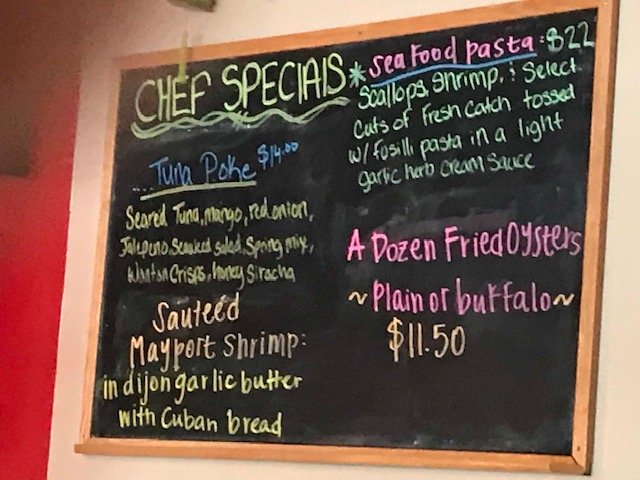 CHEF SPECIALS
Tuna Poke $14.00
Seared Tuna, mango, red onion,
Jalepeno, Seaweed salad, Spring mix,
Wanton Crisps, honey Siracha
Sauteéd
Mayport Shrimp:
in dijon garlic butter
with Cuban bread
*Sea Food pasta: $22
Scallops, Shrimp, & Select
Cuts of Fresh Catch tossed
w/ fusilli pasta in a light
garlic herb cream Sauce
A Dozen Fried Oysters
~ Plain or buffalo ~
$11.50